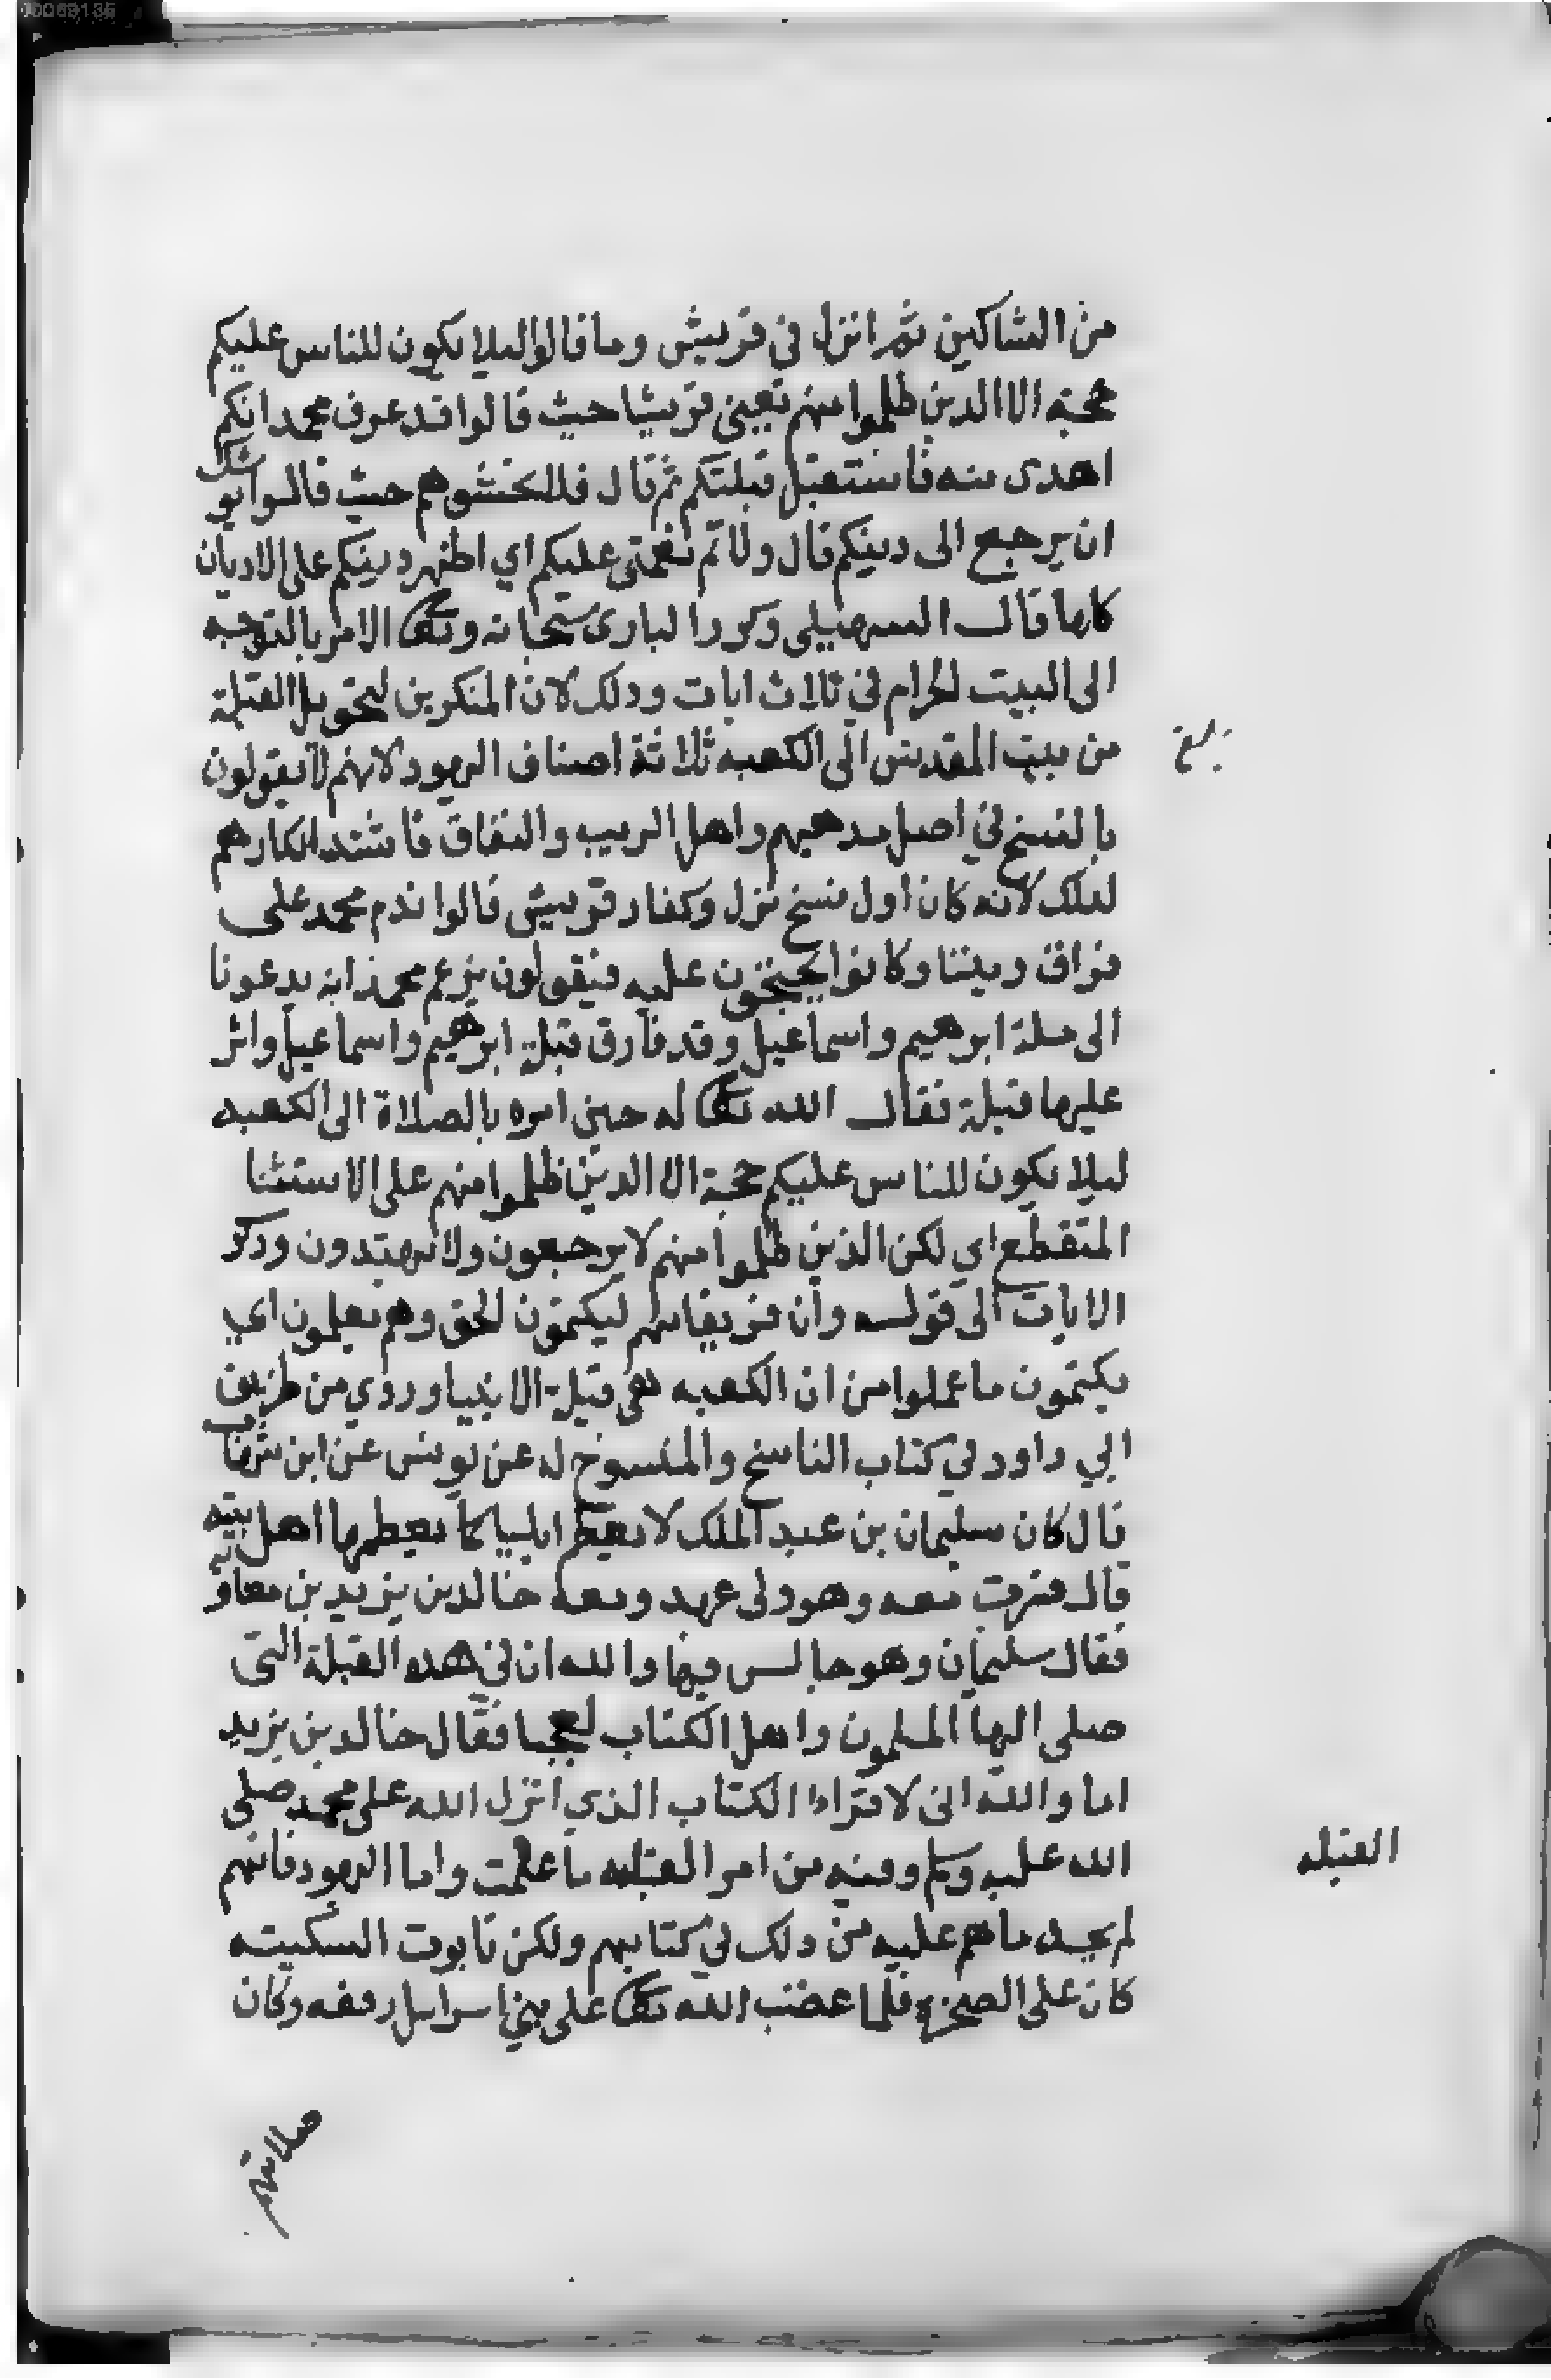 من الشاكين ثم انزل في قريش وما قالوا ليلا يكون للناس عليكم
حجة الا الدين ظلموا منهم يعني قريشا حيث قالوا قد عرف محمد انكم
اهدى منه فاستقبل قبلتكم ثم قال فلا تخشوهم حيث قالوا يوشك
ان يرجع الى دينكم قال ولاتم نعمتي عليكم اي اظهر دينكم على الاديان
كلها قال السهيلي وكرر البارى سبحانه وتعالى الامر بالتوجه
الى البيت الحرام في ثلاث ايات ودلك لان المنكرين لتحويل القبلة
من بيت المقدس الى الكعبه ثلاثة اصناف اليهود لانهم لا يقولون
بالنسخ في اصل مدهبهم واهل الريب والنفاق فاشتد انكارهم
لدلك لانه كان اول نسخ نزل وكفار قريش قالوا ندم محمد على
فراق ديننا وكانوا يحتجون عليه فيقولون يزعم محمد انه يدعونا
الى ملة ابرهيم واسماعيل وقد فارق قبلة ابرهيم واسماعيل واثر
عليها قبلة فقال الله تعالى له حين امره بالصلاة الى الكعبه
ليلا يكون للناس عليكم حجة الا الدين ظلموا منهم على الاستثنا
المنقطع اي لكن الذين ظلموا منهم لا يرجعون ولا يهتدون ودكر
الايات الى قوله وان فريقا منهم ليكتمون الحق وهم يعلمون اي
يكتمون ما علموا من ان الكعبه هي قبلة الانبيا وروي من طريق
ابي داود في كتاب الناسخ والمنسوخ له عن يونس عن ابن شهاب
قال كان سليمان بن عبد الملك لا يعظم ايليا كما يعظمها اهل بيته
قال فسرت معه وهو ولى عهد ومعه خالد بن يزيد بن معاوية
فقال سليمان وهو جالس فيها والله ان في هده القبلة التى
صلى اليها المسلمون واهل الكتاب لعجبا فقال خالد بن يزيد
اما والله انى لاقراء الكتاب الذي انزل الله على محمد صلى
الله عليه وسلم وفيه من امر القبله ما علمت واما اليهود فانهم
لم يجدوا ما هم عليه من دلك في كتابهم ولكن تابوت السكينه
كان على الصخرة فلما غضب الله تعالى على بني اسرايل رفعه وكان
بلغ
القبله